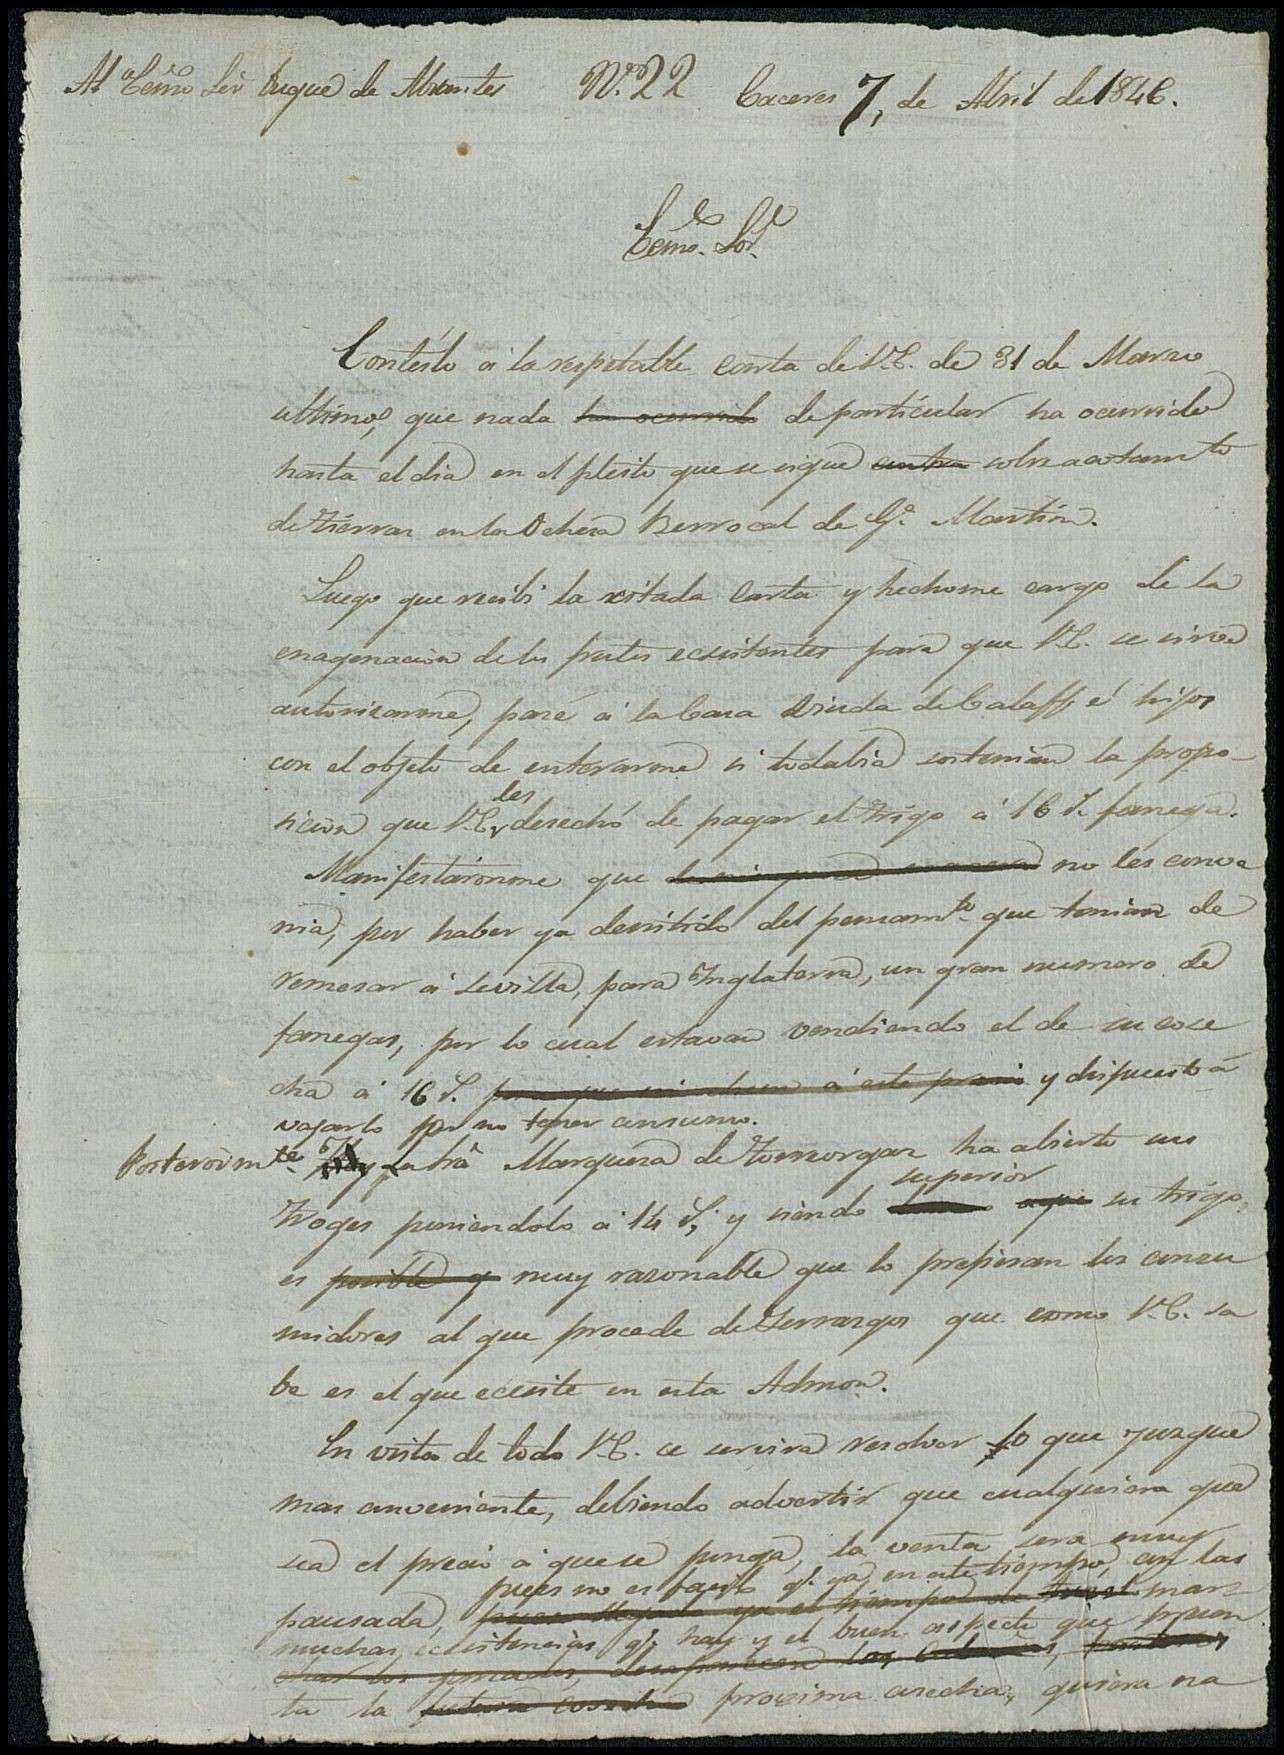 Al Ecsmo Sór Duque de Abrantes Nº. 22 Caceres 7, de Abril de 1846.
Ecsmo. Sór.
Contésto á la respetable Carta de V.E. de 31 de Marzo
ultimo, que nada ha ocurrido de partícular ha ocurrido
hasta el dia en el pleito que se sigue contra sobre acotamto
de tiérras en la Dehesa Berrocal de Gª. Martín.
Luego que recibí la citada Carta y hechome cargo de la
enagenacion de los frutos ecsistentes para que V.E. se sirva
autorizarme, pasé á la Casa Viuda de Calaff, é hijos
con el objeto de enterarme si todabia sostenian la propo-
les
sicion que V.E. desechó de pagar el trigo á 16 r. fanega.
Manifestáronme que de ninguna manera no les conve
nia, por haber ya desistido del pensamto. que tenian de
remesar á Sevilla, para Inglaterra, un gran numero de
fanegas, por lo cual estavan vendiendo el de su cose
cha á 16 r. á este precio y dispuestos á
vajarlo por no tener consumo.
Posteriormte. la Srª Marquesa de Torreorgaz ha abierto sus
superior
troges poniéndolo á 14 r, y siendo aqui su trigo,
es posible y muy razonable que lo prefieran los consu
midores al que procede de Terrazgos que como V.E. sa
be es el que ecsiste en esta Admon.
En vista de todo V.E. se servira resolver lo que juzgue
mas conveniente, debiendo advertir que cualquiera que
sea el precio á que se ponga, la venta sera muy
pues no es facil q. ya en este tiémpo, con las
pausada, pues llegado ya el tiémpo de mar-
muchas ecsistencias q. hay y el buen aspecto que presen
char los ganados, desaparecen los
ta la futura cosecha proxima cosecha, quiera na